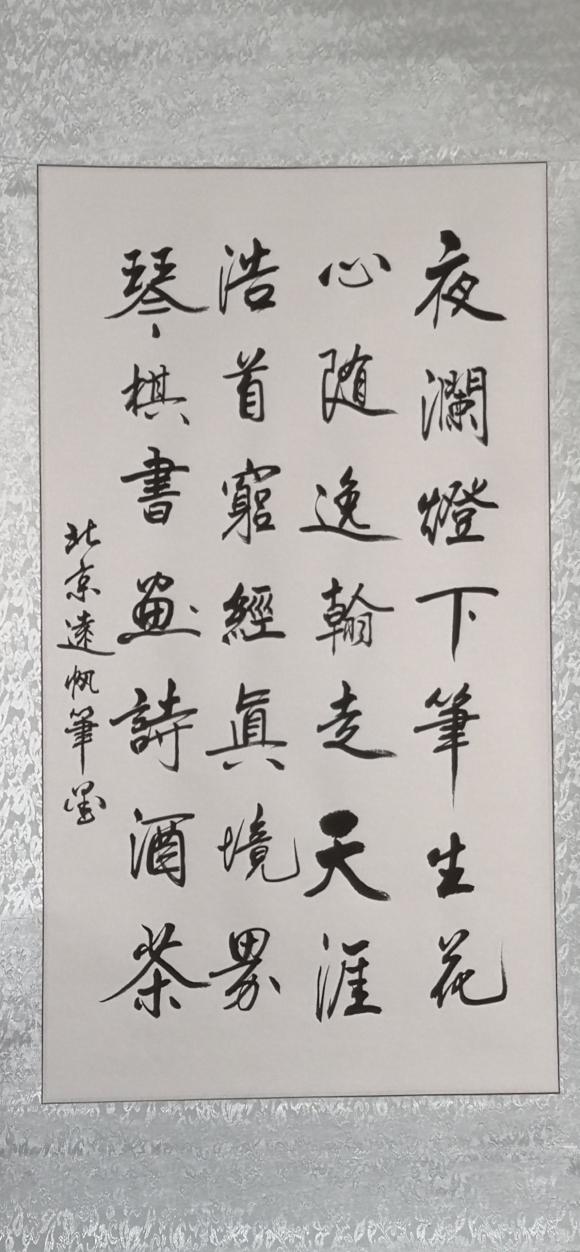 夜瀾燈下筆生花
心随逸翰走天涯
浩首窮經真境界
琴棋書畫詩酒茶
北京遠帆筆墨